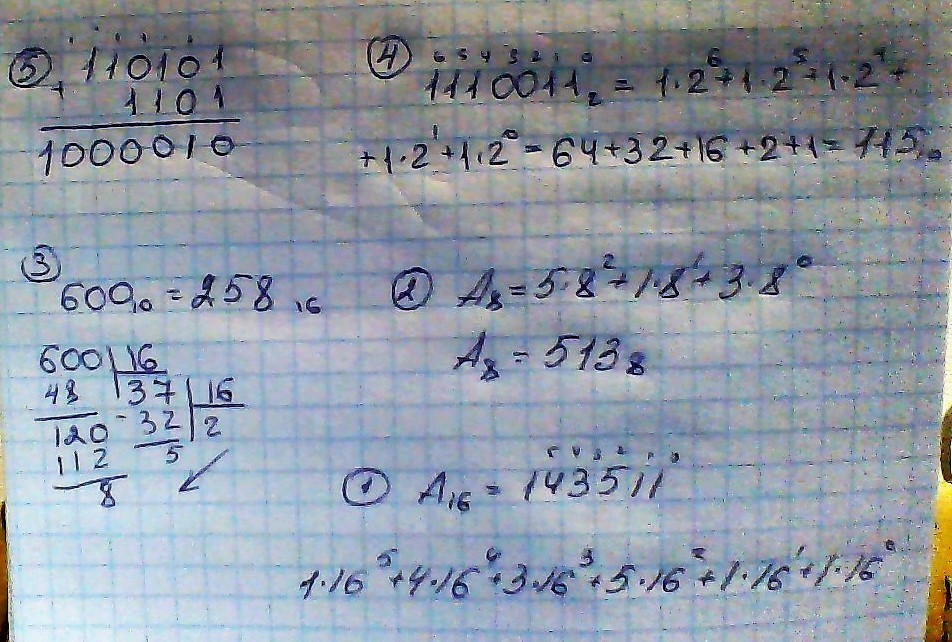 ⑤ 110101
+ 1101
1000010
④ 6 5 4 3 2 1 0
1110011₂ = 1·2⁶+1·2⁵+1·2⁴+
+1·2¹+1·2⁰=64+32+16+2+1=115₁₀
③
600₁₀ = 258₁₆
600 16
48 37 16
120 - 32 2
112 5
8
② A₈ = 5·8²+1·8¹+3·8⁰
A₈ = 513₈
5 4 3 2 1 0
① A₁₆ = 143511
1·16⁵+4·16⁴+3·16³+5·16²+1·16¹+1·16⁰